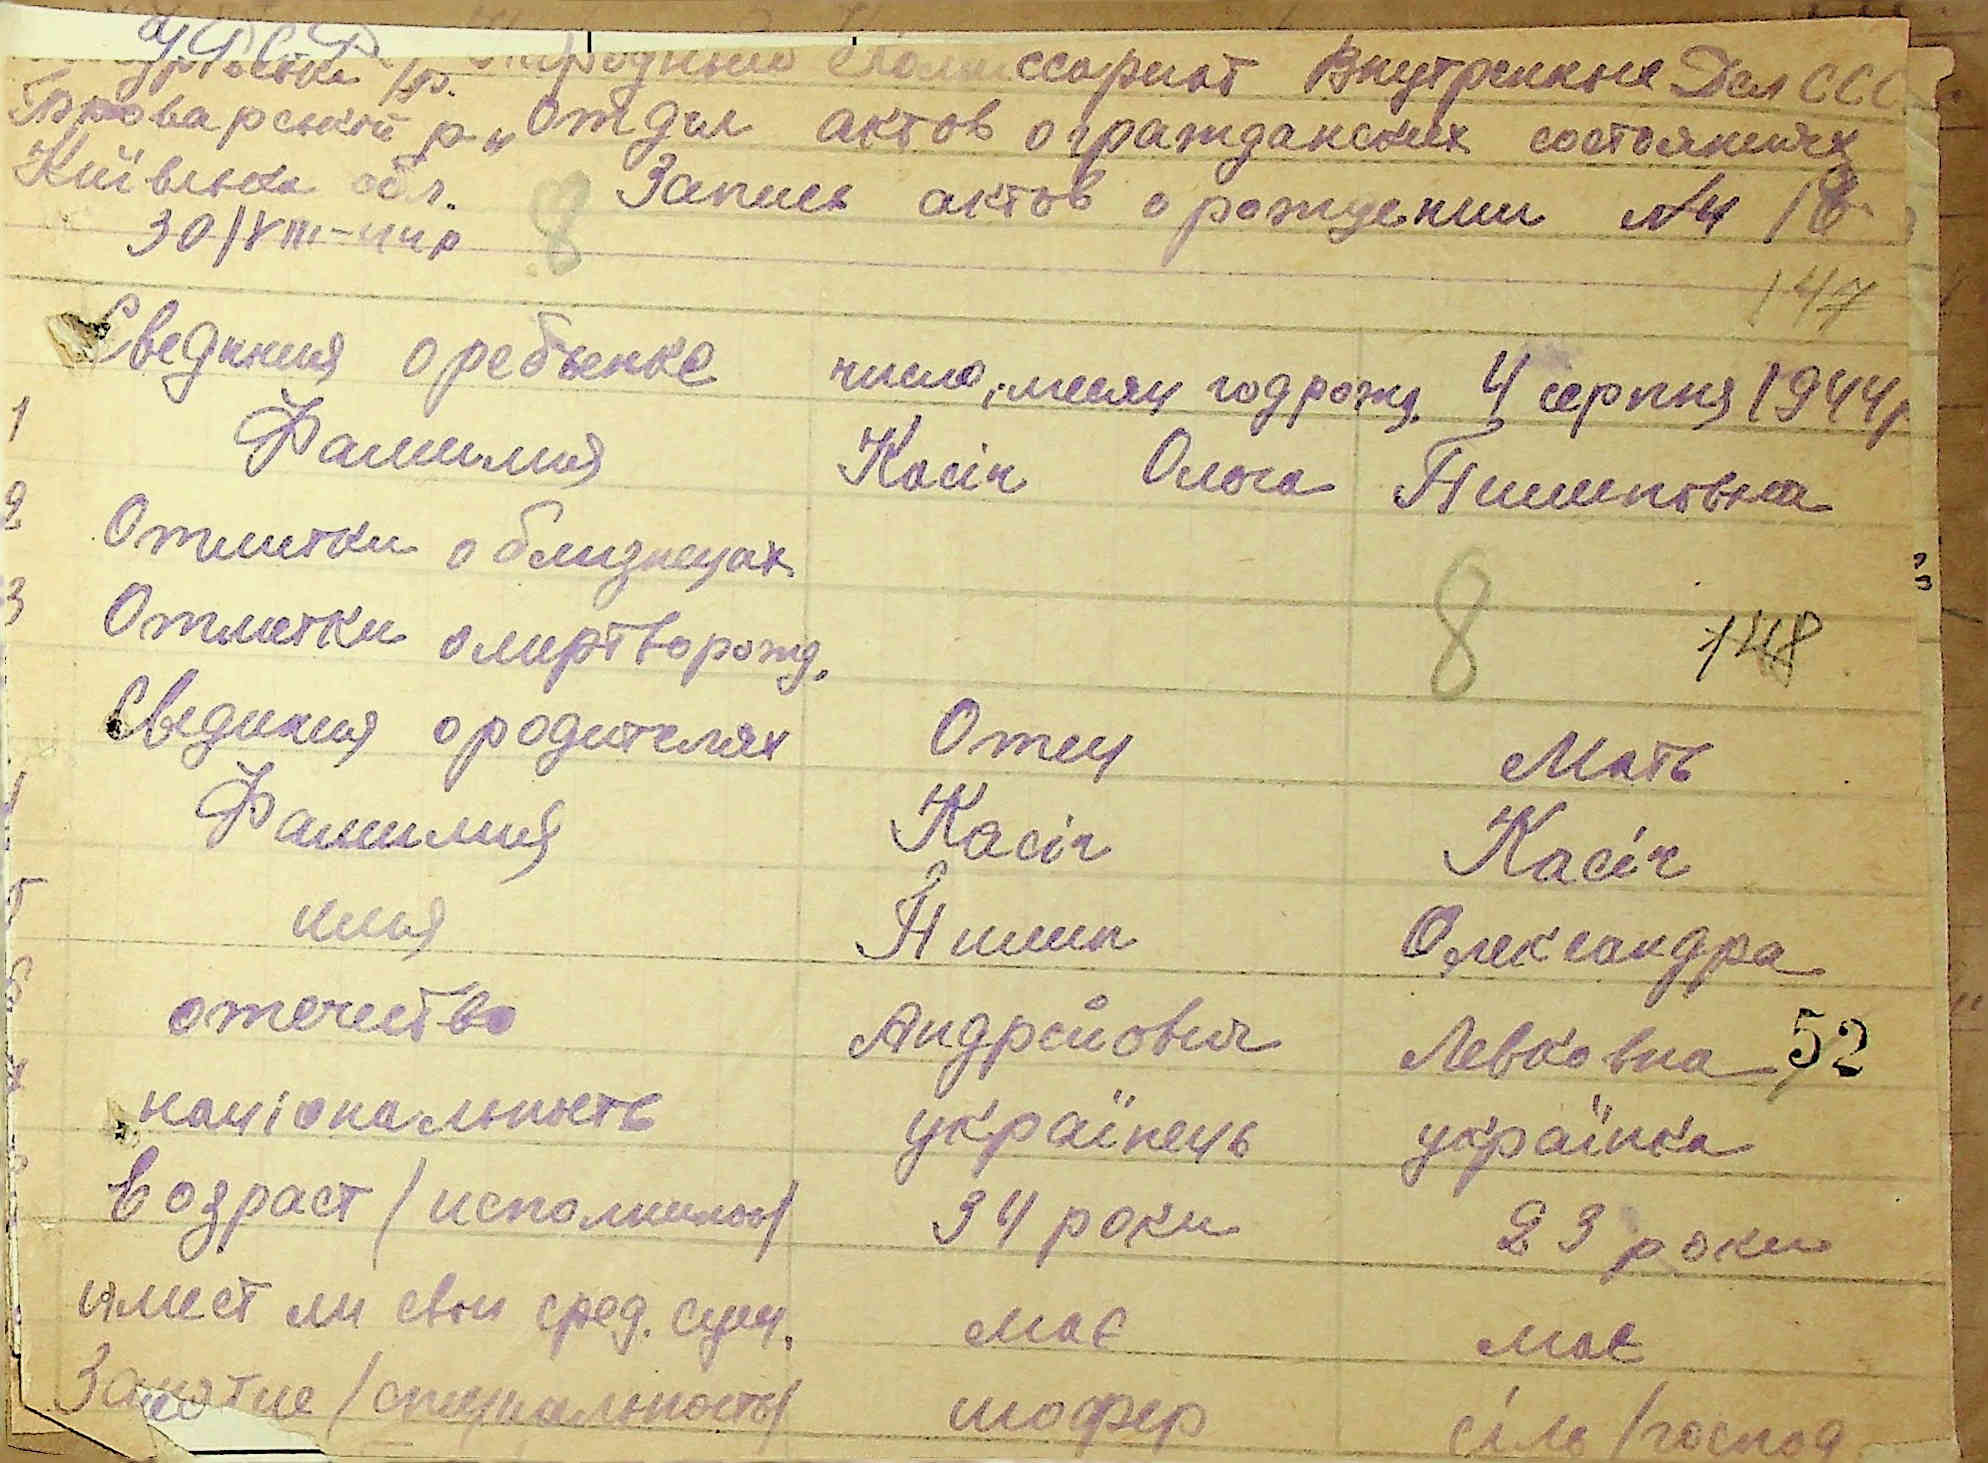 УРСР Народный Комиссариат Внутренние Дел СССР
Броварський р-н Отдел актов о гражданских состояниях
Київська обл. Запись актов о рождении №4
30/VIII-44р 8
147
Сведения о ребьенке число, месяц год рожд. 4 серпня 1944р
1 Фамилия Касіч Ольга Пилиповна
2 Отметки о близнецах
3 Отметки о мертворожд. 8 148
Сведения о родителях Отец Мать
Фамилия Касіч Касіч
5 имя Пилип Олександра
6 отечество Андрейович Левковна 52
7 національность українець українка
Возраст /исполнилось/ 34 роки 23 роки
имеет ли свои сред. сущ. має має
Занятие /специальность/ шофер сіль/господ